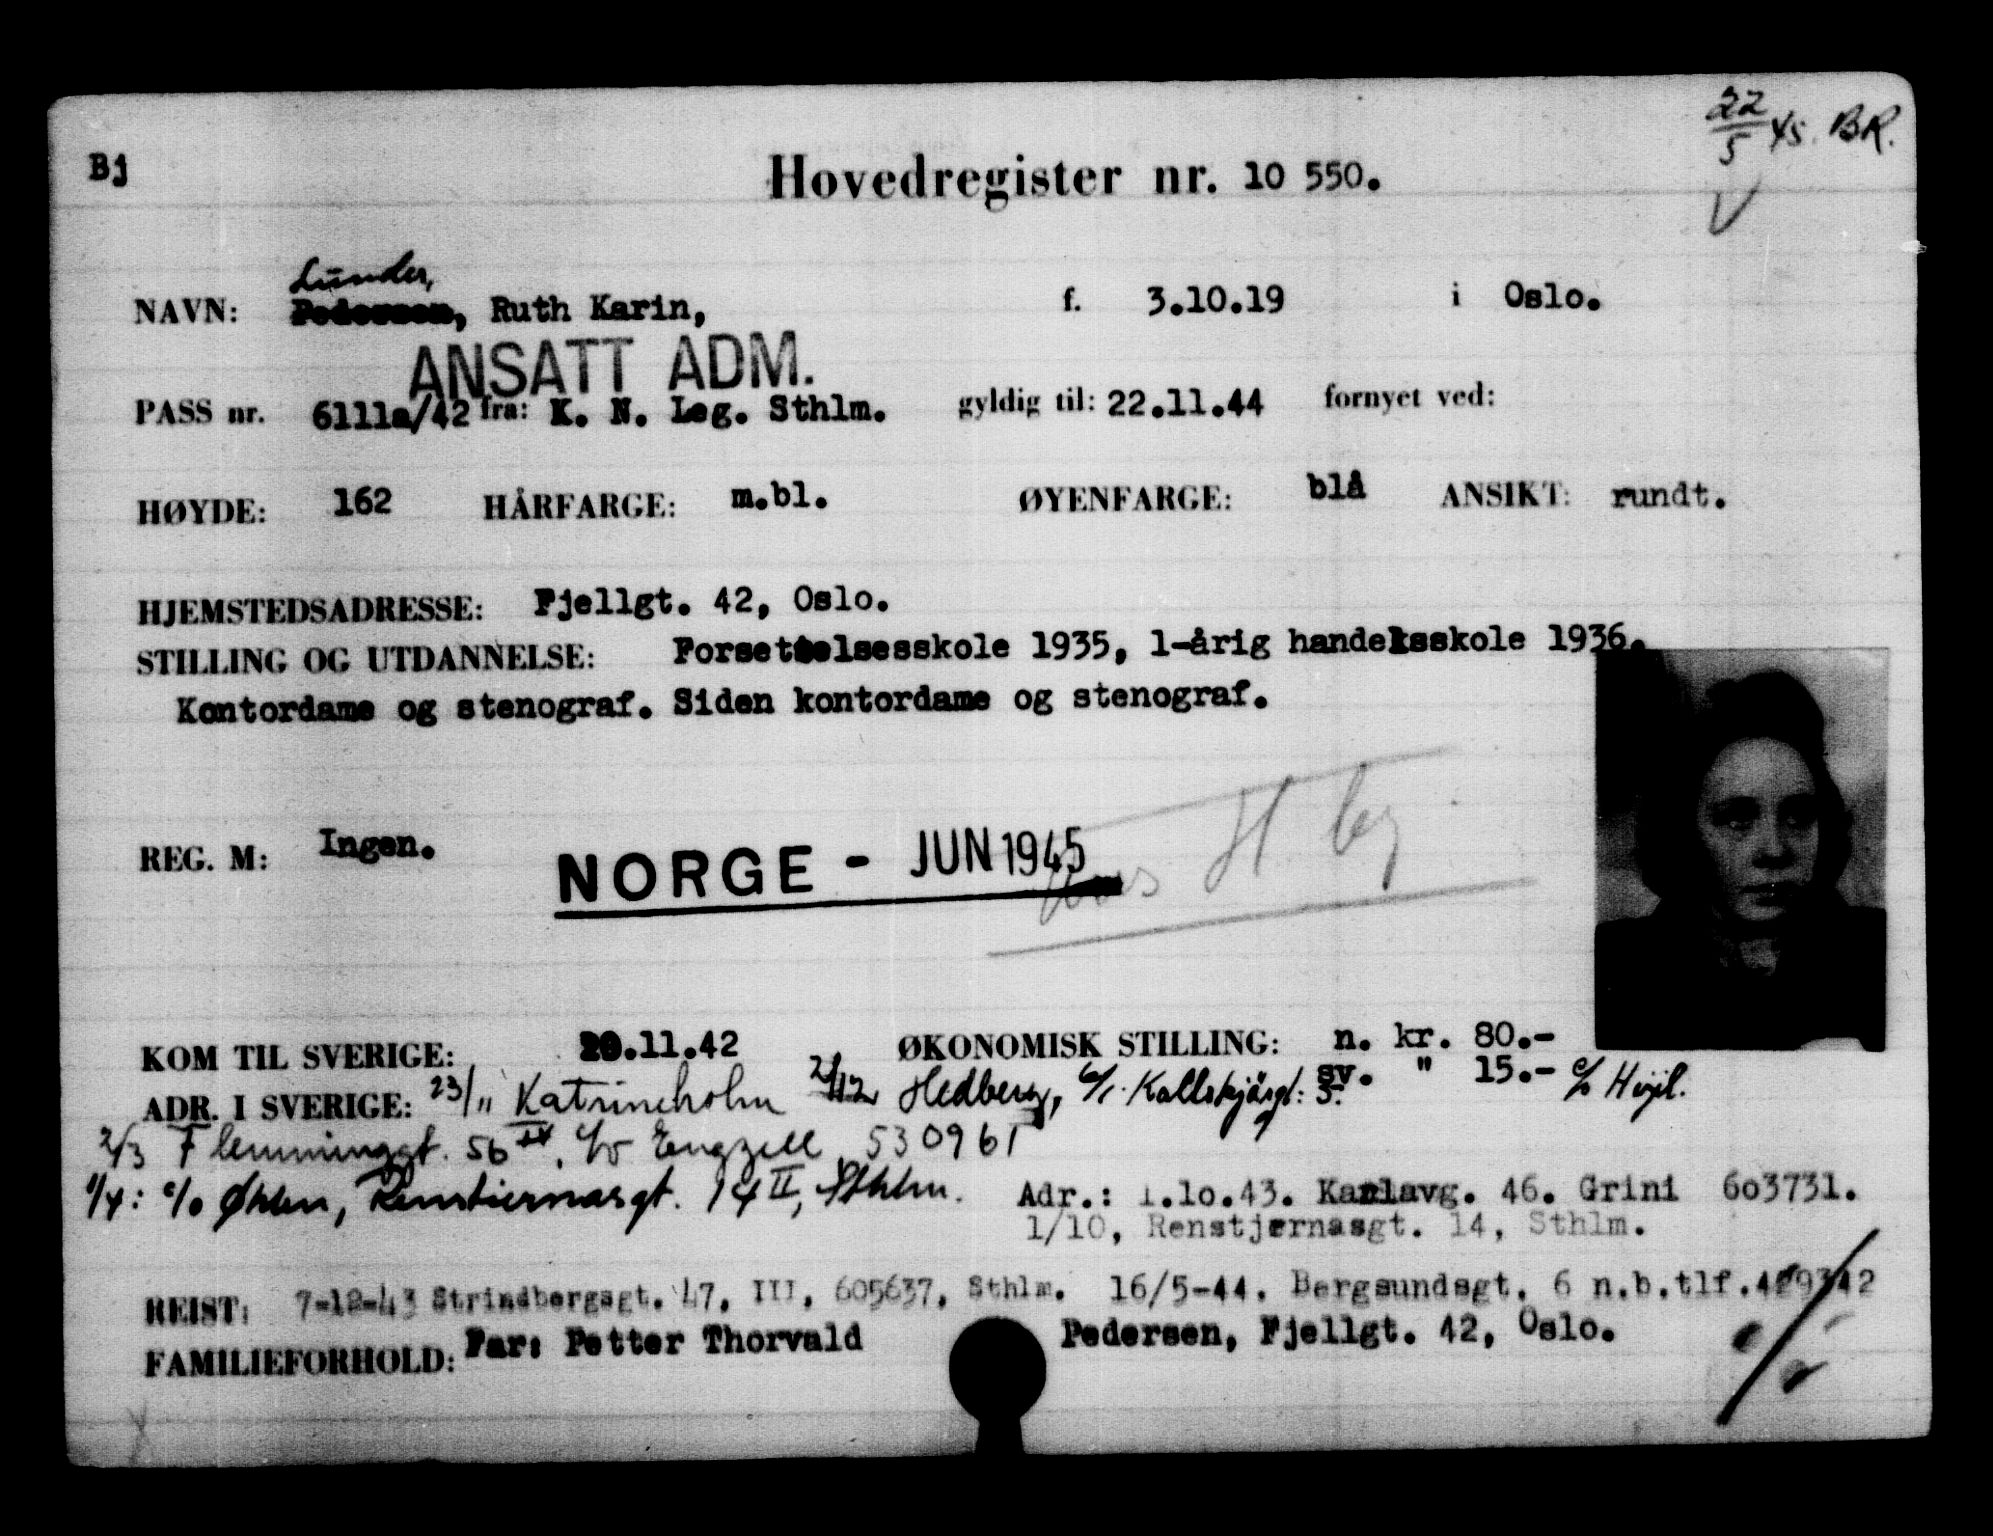 22/5 45. BR.
Bj
Hovedregister nr. 10 550.
Lunder,
NAVN: Pedersen, Ruth Karin, f. 3.10.19 i Oslo.
ANSATT ADM.
PASS nr. 6111a/42 fra: K. N. Leg. Sthlm. gyldig til: 22.11.44 fornyet ved:
HØYDE: 162 HÅRFARGE: m.bl. ØYENFARGE: blå ANSIKT: rundt.
HJEMSTEDSADRESSE: Fjellgt. 42, Oslo.
STILLING OG UTDANNELSE: Forsettelsesskole 1935, 1-årig handelsskole 1936.
Kontordame og stenograf. Siden kontordame og stenograf.
REG. M: Ingen.
NORGE - JUN 1945
KOM TIL SVERIGE: 20.11.42 ØKONOMISK STILLING: n. kr. 80.-
sv. " 15.-
ADR. I SVERIGE: 23/11 Katrineholm 2/12 Hedberg, Kallskjärsgt. 5. c/o
2/3 Flemminggt. 56 c/o Engzell 530961
1/4: c/o Øhlen, Renstiernasgt. 14 II, Sthlm.
Adr.: 1.10.43. Karlavg. 46. Grini 603731.
1/10, Renstjernasgt. 14, Sthlm.
REIST: 7-12-43 Strindbergsgt. 47, III, 605637, Sthlm. 16/5-44. Bergsundsgt. 6 n.b.tlf.
FAMILIEFORHOLD: Far: Petter Thorvald Pedersen, Fjellgt. 42, Oslo.